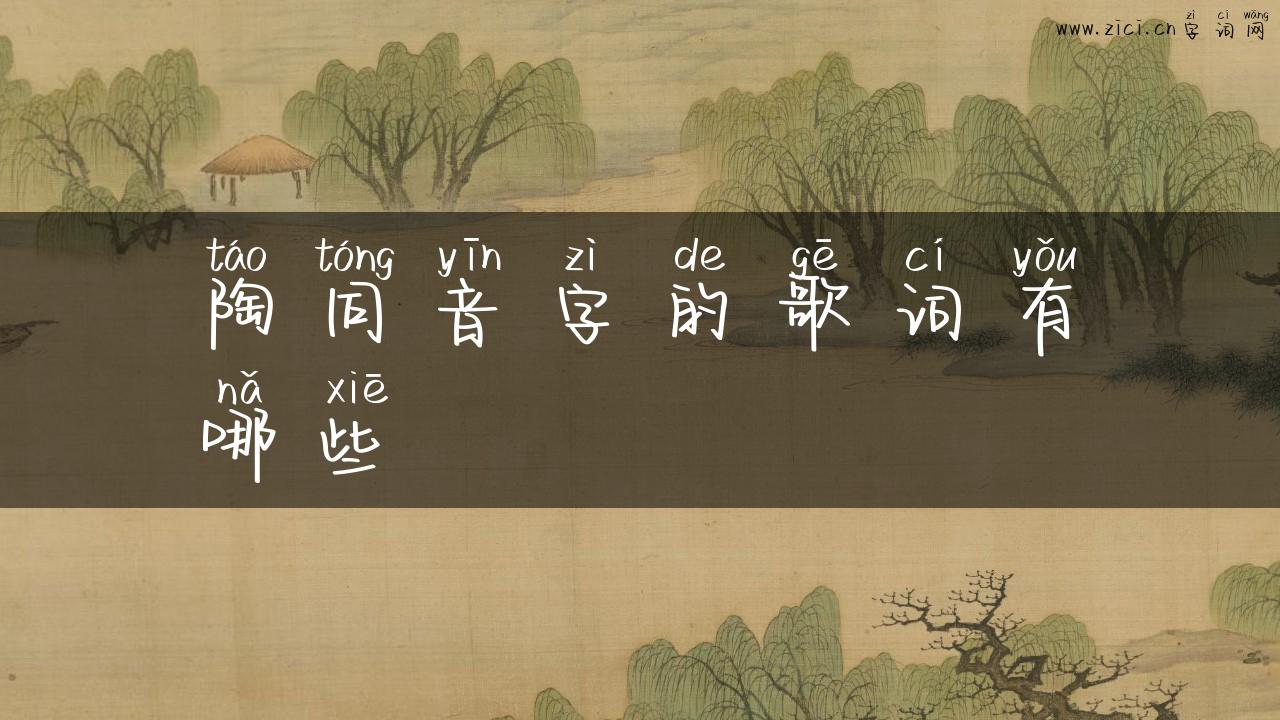 zì cí wǎng
www.zici.cn 字 词 网
táo tóng yīn zì de gē cí yǒu
陶 同 音 字 的 歌 词 有
nǎ xiē
哪 些